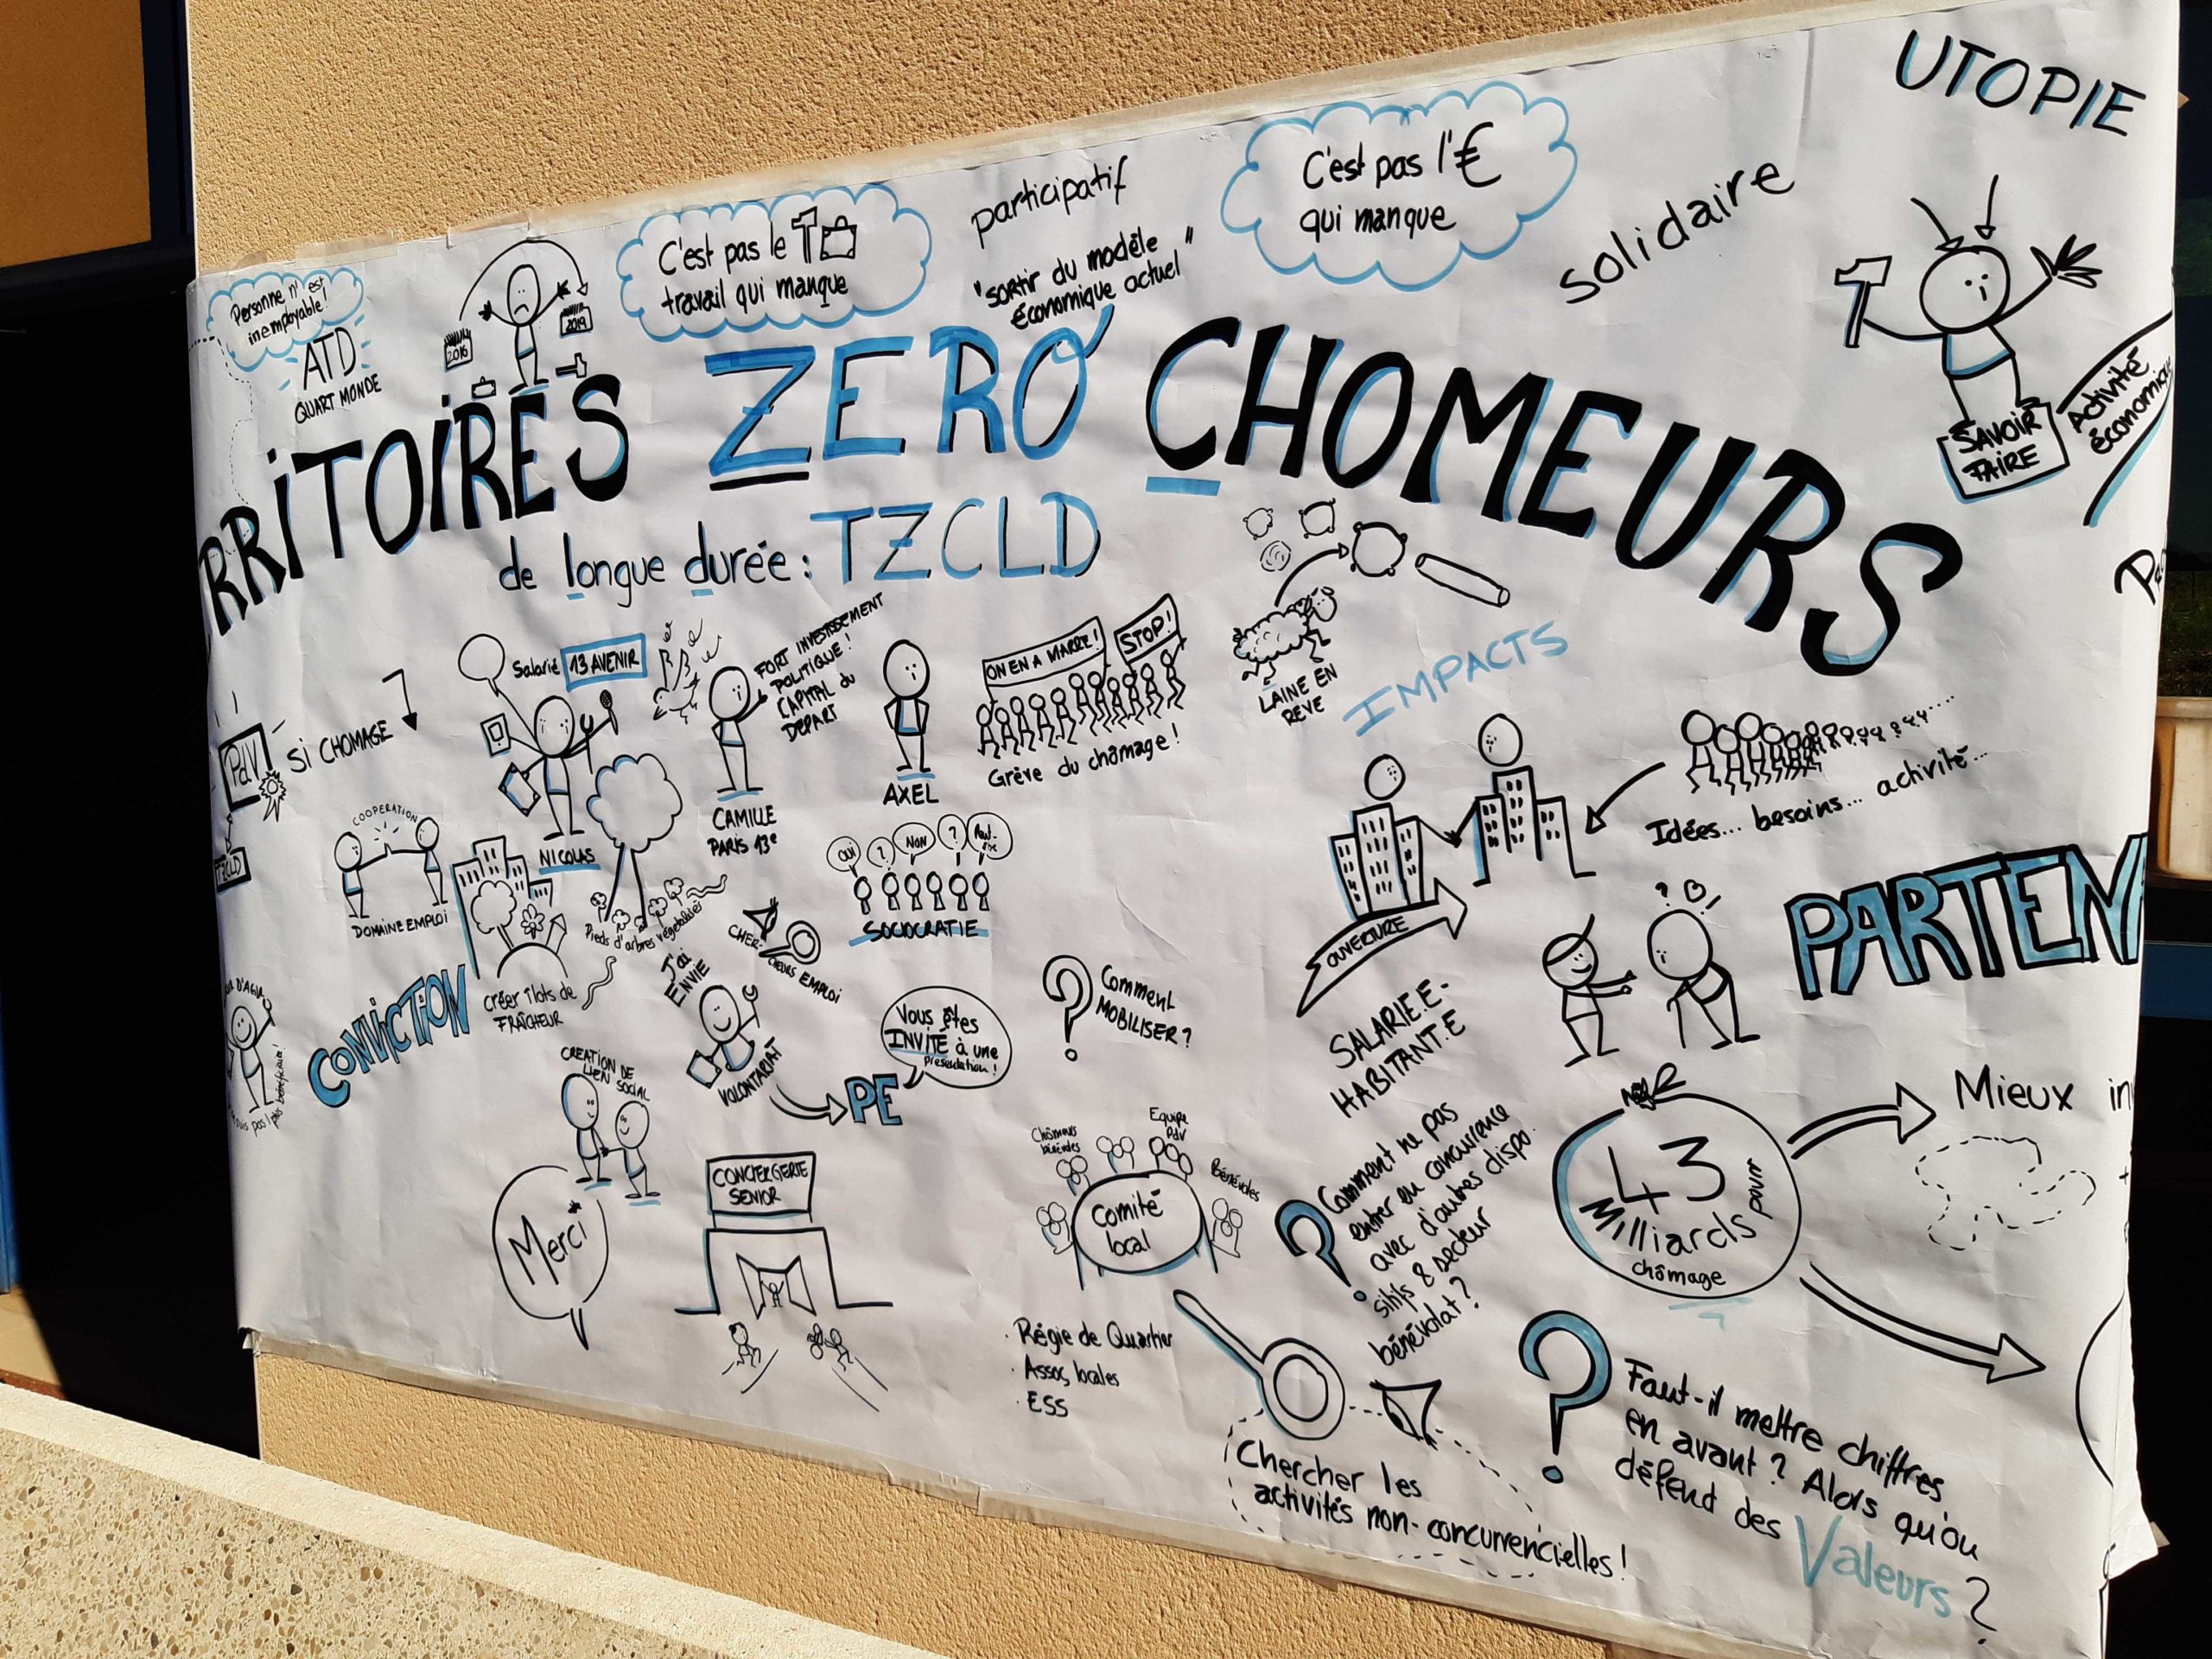 Personne n'est
inemployable!
ATD
QUART MONDE
2016
2019
C'est pas le
travail qui manque
participatif
"sortir du modèle
économique actuel"
C'est pas l'€
qui manque
solidaire
UTOPIE
SAVOIR
FAIRE
Activité
économique
RRITOIRES ZERO CHOMEURS
de longue durée : TZCLD
PdV
SI CHOMAGE
TZCLD
Salarié 13 AVENIR
NICOLAS
FORT INVESTISSEMENT
POLITIQUE!
CAPITAL du
DEPART
CAMILLE
PARIS 13e
AXEL
ON EN A MARRE!
STOP!
Grève du chômage!
LAINE EN
REVE
IMPACTS
Idées... besoins... activité...
COOPERATION
DOMAINE EMPLOI
Pieds d'arbres végétalisés
créer îlots de
FRAÎCHEUR
CONVICTION
OUI
?
NON
?
Peut-
être
SOCIOCRATIE
CHER-
CHEURS EMPLOI
J'ai
ENVIE
VOLONTARIAT
PE
Vous êtes
INVITÉ à une
présentation!
Comment
MOBILISER?
OUVERTURE
SALARIE.E-
HABITANT.E
PARTEN
D'AGIR
CREATION DE
LIEN SOCIAL
Merci
CONCIERGERIE
SENIOR
Chômeurs
bénévoles
Equipe
PdV
Bénévoles
Comité
local
· Régie de Quartier
· Assos locales
· ESS
Comment ne pas
entrer en concurrence
avec d'autres dispo-
sitifs & secteur
bénévolat?
43
Milliards pour
chômage
Mieux in
Chercher les
activités non-concurrencielles!
Faut-il mettre chiffres
en avant? Alors qu'on
défend des Valeurs?